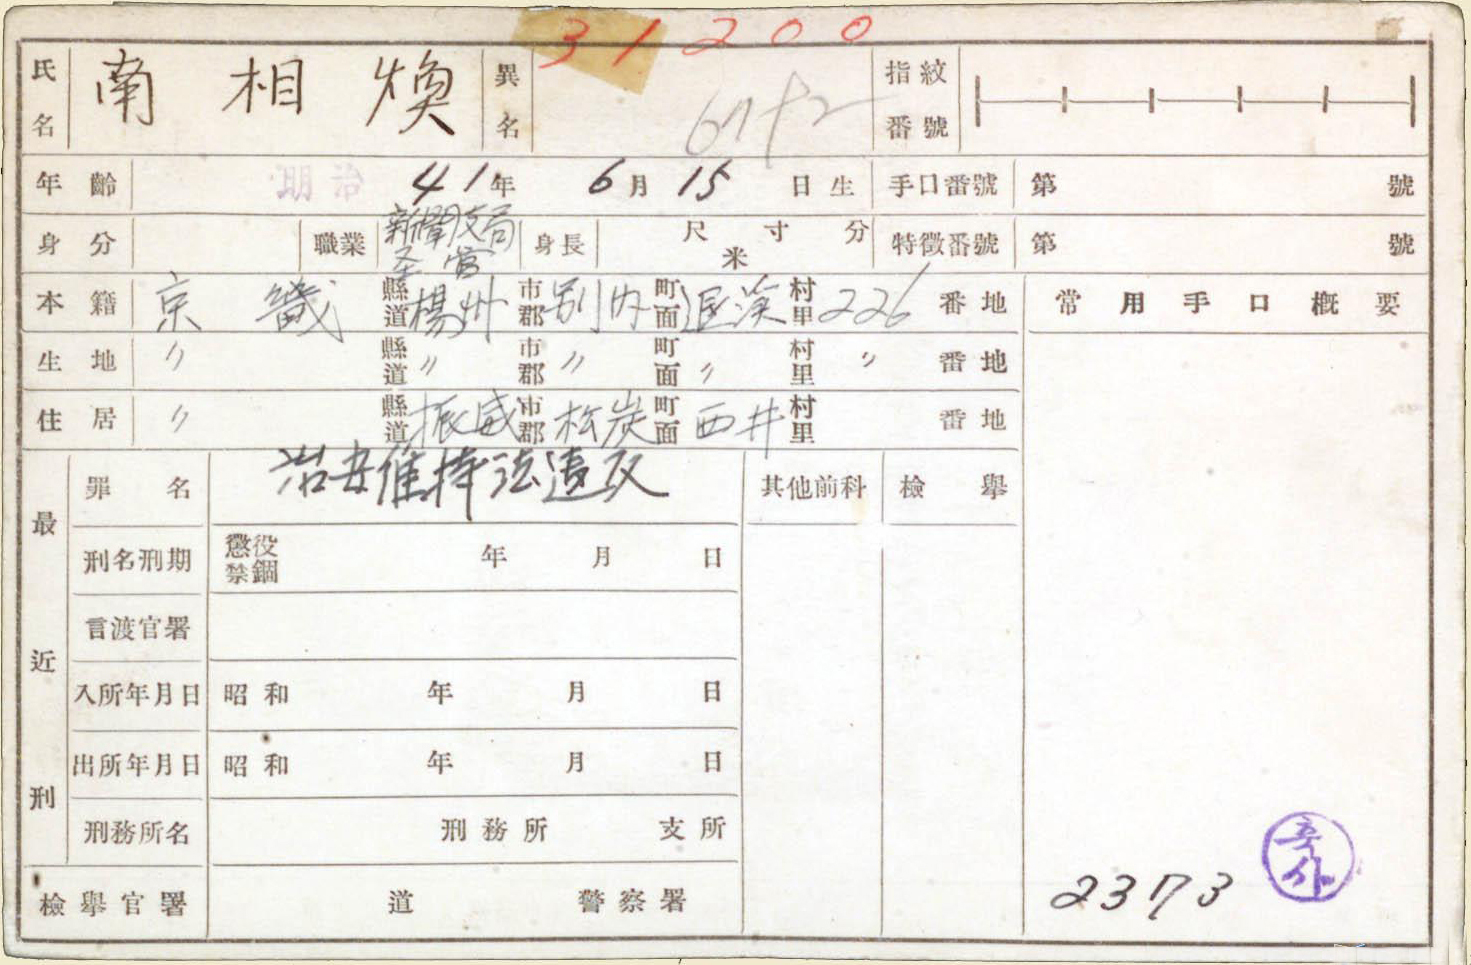 31200
氏名 南相煥 異名 指紋番號
年齡 明治 41年 6月 15日生 手口番號 第 號
身分 職業 新聞支局 身長 尺寸分 米 特徵番號 第 號
本籍 京畿 縣道 楊州 市郡 別內 町面 退溪 村里 226 番地 常用手口概要
生地 〃 縣道 〃 市郡 〃 町面 〃 村里 〃 番地
住居 〃 縣道 振威 市郡 松炭 町面 西井 村里 番地
最近刑 罪名 治安維持法違反 其他前科 檢擧
刑名刑期 懲役 禁錮 年月日
言渡官署
入所年月日 昭和 年月日
出所年月日 昭和 年月日
刑務所名 刑務所 支所
檢擧官署 道 警察署
2373